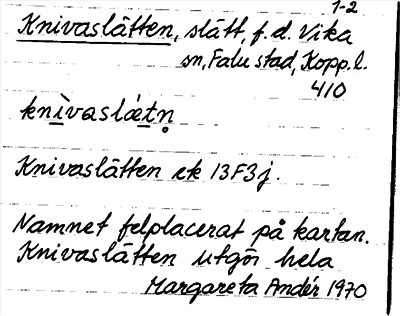 1-2
Knivaslätten, slått, f. d. Vika
sn, Falu stad, Kopp. l.
410
knìvaslǽtn̥
Knivaslätten ek 13F3j.
Namnet felplacerat på kartan.
Knivaslätten utgör hela
Margareta Andér 1970